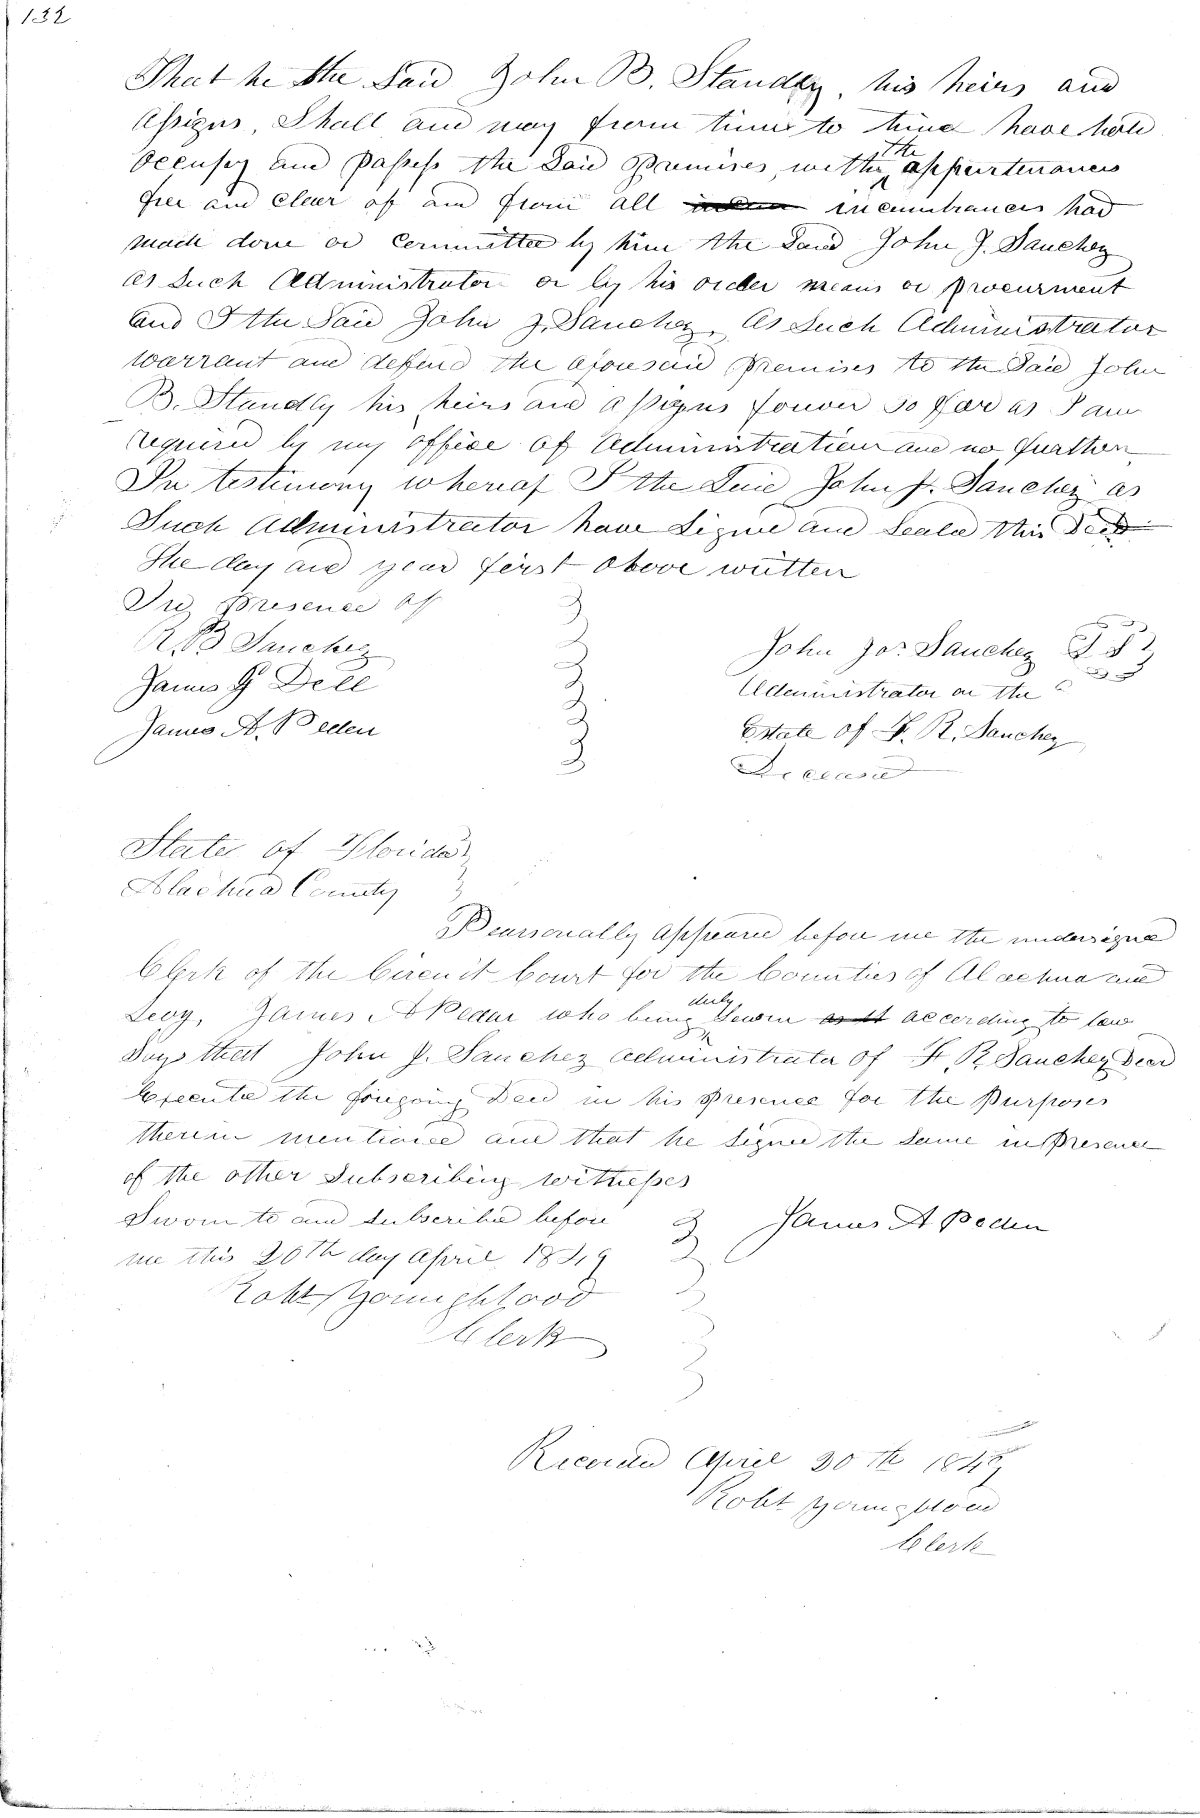 132
That he the Said John B. Standly, his heirs and
Assigns, Shall and may from time to time have hold
occupy and possess the Said premises, with the appurtenances
free and clear of and from all incumbrances had
made done or committed by him the Said John J. Sanchez
as Such Administrator or by his order means or procurment
and I the Said John J. Sanchez, As Such Administrator
warrant and defend the aforesaid premises to the Said John
B. Standly his heirs and assigns forever so far as I am
required by my office of administration and no further
In testimony whereof I the Said John J. Sanchez as
Such Administrator have Signed and Sealed this Deed
The day and year first above written
In presence of
R. B Sanchez
James G Dell
James A. Peden
John Jos. Sanchez L S
Administrator on the
Estate of F. R. Sanchez
Deceased
State of Florida
Alachua County
Pearsonally appeared before me the undersigned
Clerk of the Circuit Court for the Counties of Alachua and
Levy, James A Peden who being duly Sworn according to law
Says that John J. Sanchez administrator of F. R. Sanchez Decd
Executed the foregoing Deed in his presence for the Purposes
therein mentioned and that he Signed the Same in presence
of the other Subscribing witnesses
Sworn to and Subscribed before
me this 20th day April 1849
James A Peden
Robt Youngblood
Clerk
Recorded April 20th 1849
Robt Youngblood
Clerk